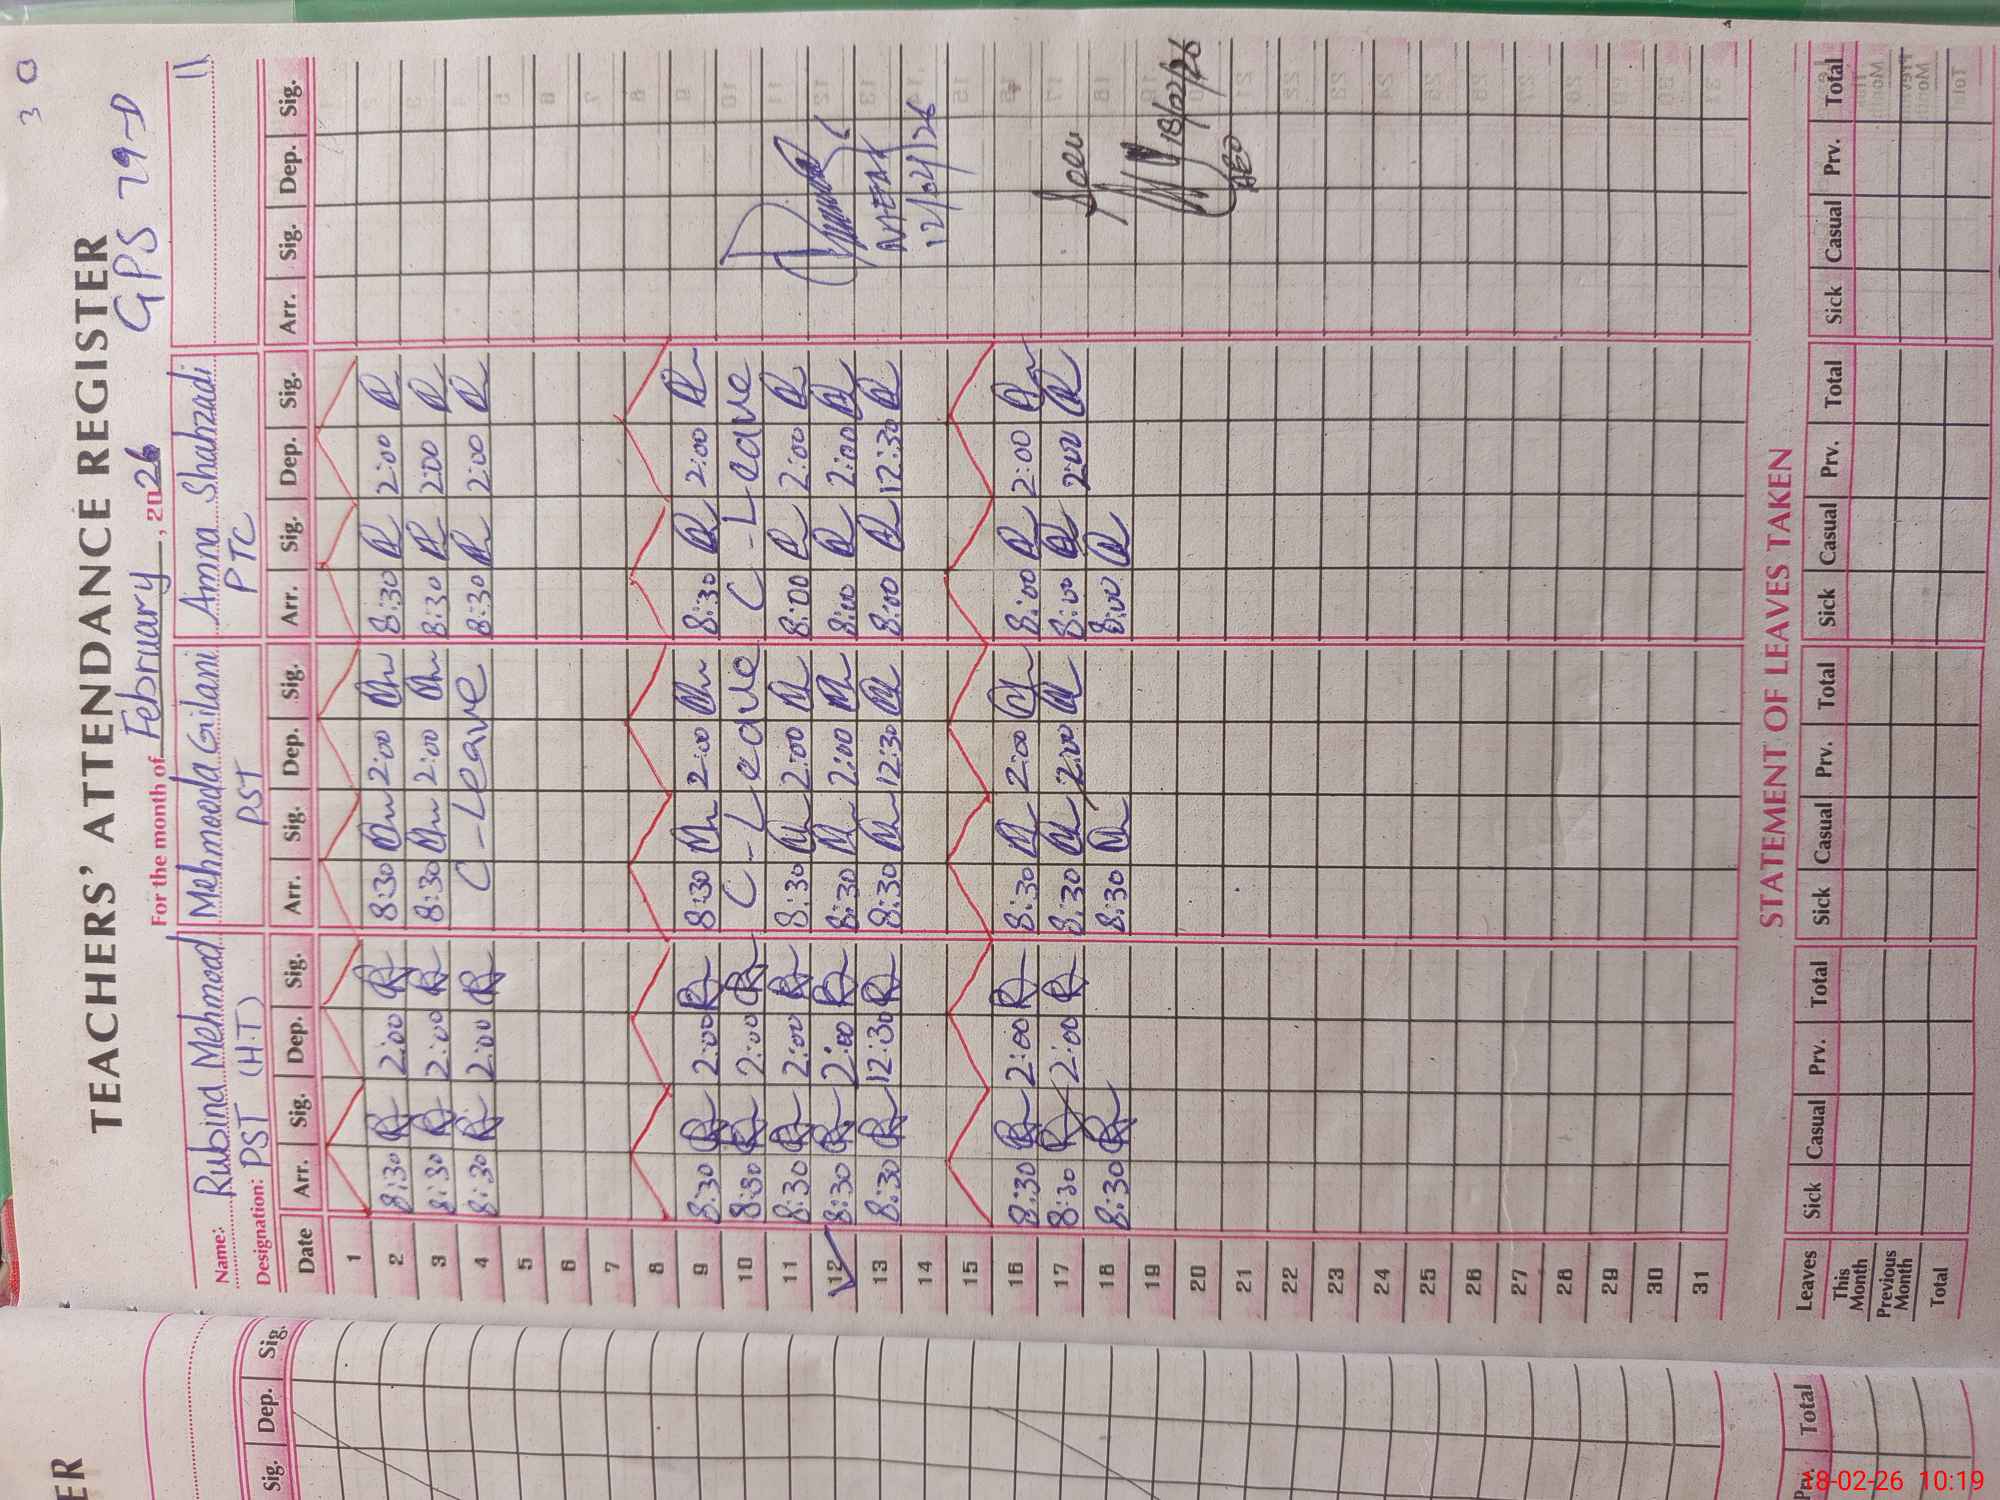 30
TEACHERS' ATTENDANCE REGISTER
For the month of February, 2026 GPS 79-D
Name: Rubina Mehmood Mehmooda Gilani Amna Shahzadi 11
Designation: PST (H.T) PST PTC
Date Arr. Sig. Dep. Sig. Arr. Sig. Dep. Sig. Arr. Sig. Dep. Sig. Arr. Sig. Dep. Sig.
1
2 8:30 2:00 8:30 2:00 8:30 2:00
3 8:30 2:00 8:30 2:00 8:30 2:00
4 8:30 2:00 C-Leave 8:30 2:00
5
6
7
8
9 8:30 2:00 8:30 2:00 8:30 2:00
10 8:30 2:00 C-Leave C-Leave
11 8:30 2:00 8:30 2:00 8:00 2:00
12 8:30 2:00 8:30 2:00 8:00 2:00
13 8:30 12:30 8:30 12:30 8:00 12:30
14
15
16 8:30 2:00 8:30 2:00 8:00 2:00
17 8:30 2:00 8:30 2:00 8:00 2:00
18 8:30 8:30 8:00 18/02/26
AEO
19
20
21
22
23
24
25
26
27
28
29
30
31
STATEMENT OF LEAVES TAKEN
Leaves Sick Casual Prv. Total Sick Casual Prv. Total Sick Casual Prv. Total Sick Casual Prv. Total
This Month
Previous Month
Total
ER
Sig. Dep. Sig.
Prv. Total
18-02-26 10:19